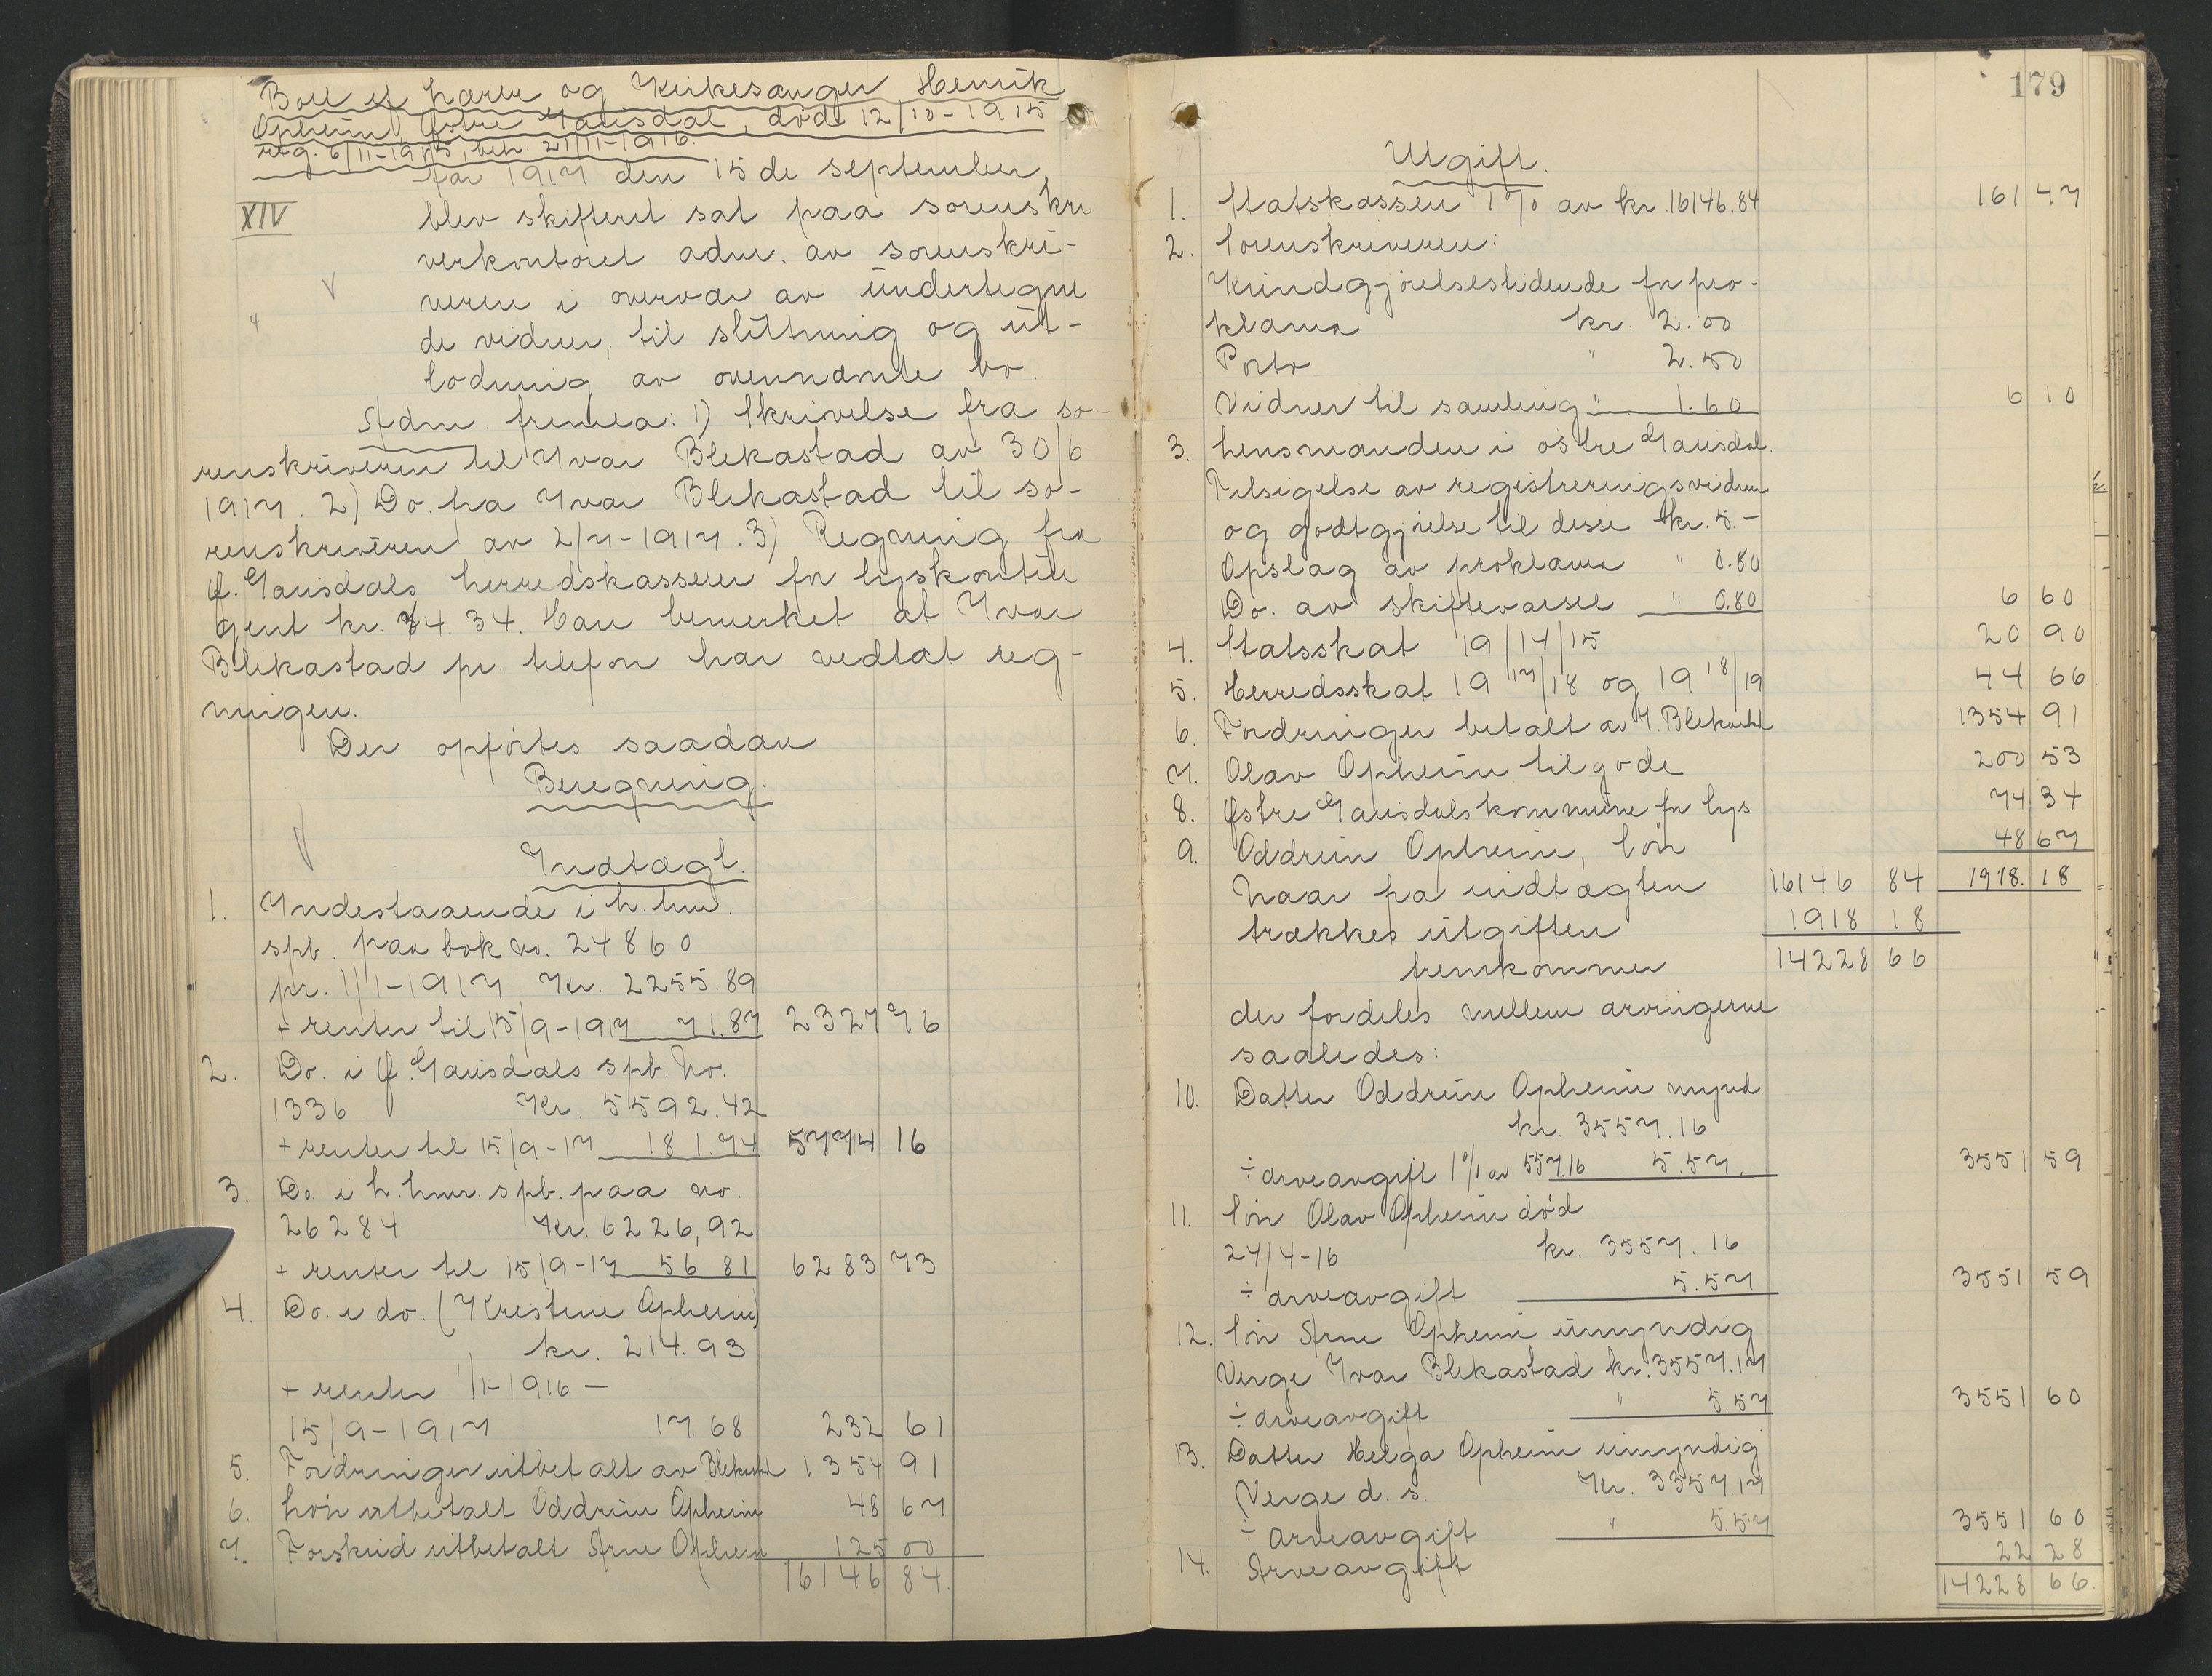 Boet ef. lærer og kirkesanger Henrik
Opheim, Østre Gausdal, død 12/10-1915
reg. 6/11-1915, beh. 21/11-1916.
Aar 1917 den 15de september
XIV
blev skifteret sat paa sorenskri
verkontoret adm. av sorenskri-
veren i overvær av undertegne
de vidner, til slutning og ut-
lodning av ovennævnte bo.
Adm. fremla: 1) Skrivelse fra so-
renskriveren til Yvar Blekastad av 30/6
1917. 2) Do. fra Yvar Blekastad til so-
renskriveren av 2/7-1917. 3) Regning fra
Ø. Gausdals herredskasserer for lyskontin
gent kr. 74.34. Han bemerket at Yvar
Blekastad pr. telefon har vedtat reg-
ningen.
Der opførtes saadan
Beregning.
Indtægt.
1. Indestaaende i L.hmr.
spb. paa bok no. 24860
pr. 1/1-1917 Kr. 2255.89
+ renter til 15/9-1917 71.87 2327 76
2. Do. i Ø. Gausdals spb. No.
1336 Kr. 5592.42
+ renter til 15/9-17 181.74 5774 16
3. Do. i L.hmr. spb. paa no.
26284 Kr. 6226,92
+ renter til 15/9-17 56 81 6283 73
4. Do. i do. (Kristine Opheim)
kr. 214.93
+ renter 1/1-1916 —
15/9-1917 17.68 232 61
5. Fordringer utbetalt av Blekastad 1354 91
6. Løn utbetalt Oddrun Opheim 48 67
7. Forskud utbetalt Arne Opheim 125 00
16146 84.
179
Utgift.
1. Statskassen 1% av kr. 16146.84 161 47
2. Sorenskriveren:
Kundgjørelsestidende for pro-
klama kr. 2.00
Porto " 2.50
Vidner til samling " 1.60 6 10
3. Lensmanden i Østre Gausdal.
Tilsigelse av registreringsvidner
og godtgjørelse til disse kr. 5.-
Opslag av proklama " 0.80
Do. av skiftevarsel " 0.80 6 60
4. Statsskat 19/14/15 20 90
5. Herredsskat 19 17/18 og 19 18/19 44 66
6. Fordringer betalt av Y. Blekastad 1354 91
7. Olav Opheim tilgode 200 53
8. Østre Gausdals kommune for lys 74 34
9. Oddrun Opheim, løn 48 67
Naar fra indtægten 16146 84 1918.18
trækkes utgiften 1918 18
fremkommer 14228 66
der fordeles mellem arvingerne
saaledes:
10. Datter Oddrun Opheim mynd.
kr. 3557.16
÷ arveavgift 1% av 557.16 5.57. 3551 59
11. Søn Olav Opheim død
24/4-16 kr. 3557.16
÷ arveavgift 5.57 3551 59
12. Søn Arne Opheim umyndig
Verge Yvar Blekastad kr. 3557.17
÷ arveavgift " 5.57 3551 60
13. Datter Helga Opheim umyndig
Verge d. s. Kr. 3357.17
÷ arveavgift " 5.57 3551 60
14. Arveavgift 22 28
14228 66.